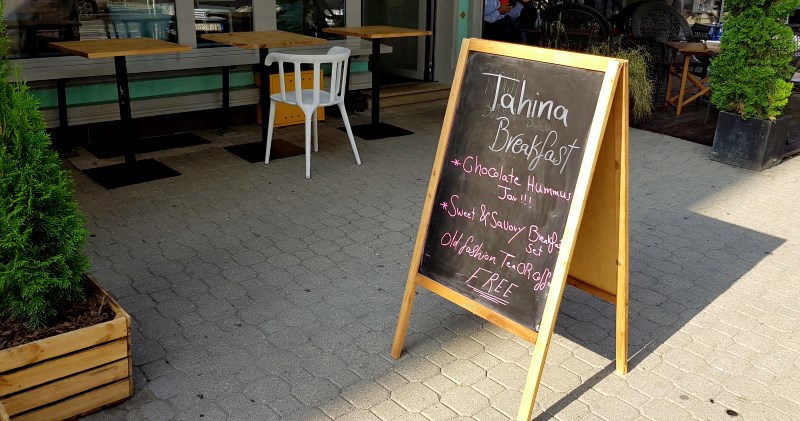 Tahina
Breakfast
* Chocolate Hummus
Jar!!!
* Sweet & Savory Breakfast
Set
Old fashion Tea OR Coffee
FREE